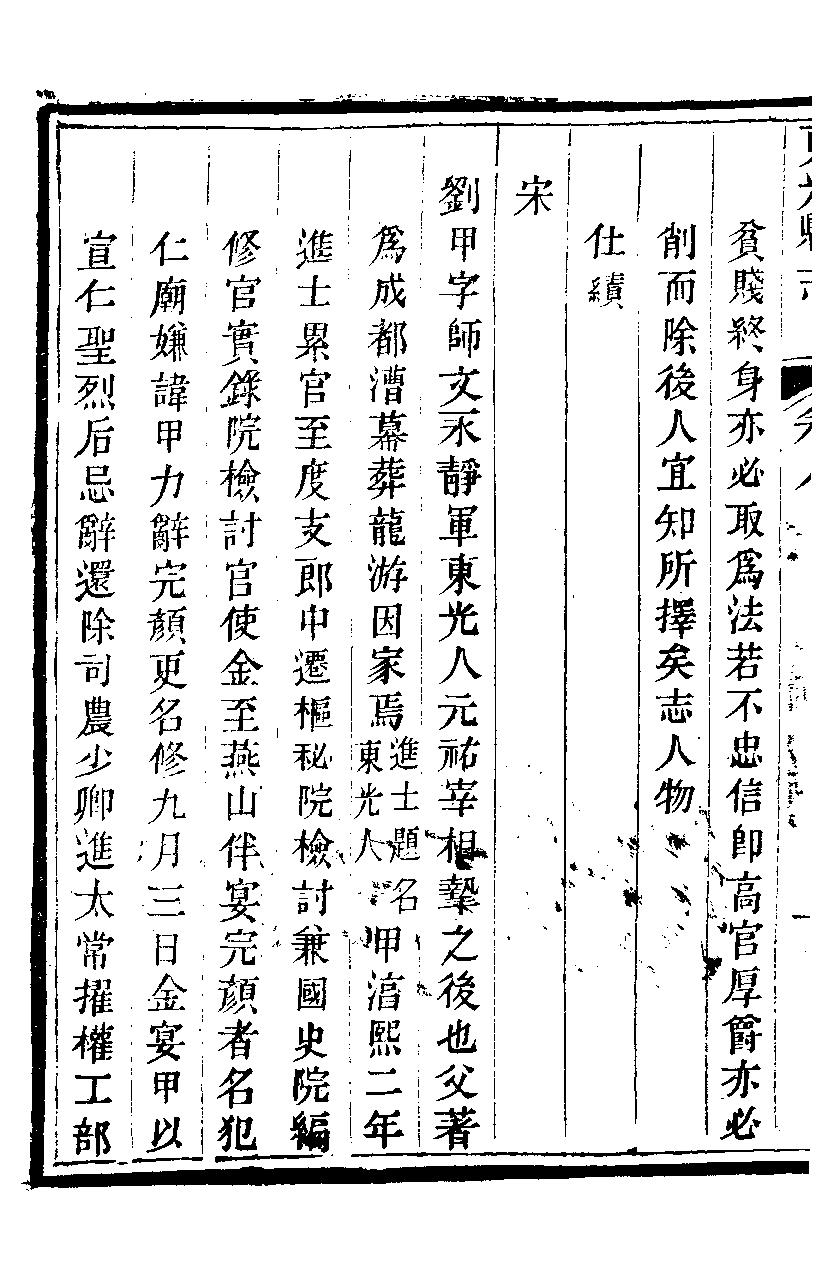 貧賤終身亦必取爲法若不忠信卽高官厚爵亦必
削而除後人宜知所擇矣志人物
仕績
宋
劉甲字師文永靜軍東光人元祐宰相摯之後也父著
爲成都漕幕葬龍游因家焉進士題名東光人甲湻熙二年
進士累官至度支郎中遷樞秘院檢討兼國史院編
修官實錄院檢討官使金至燕山伴宴完顏者名犯
仁廟嫌諱甲力辭完顏更名修九月三日金宴甲以
宣仁聖烈后忌辭還除司農少卿進太常擢權工部